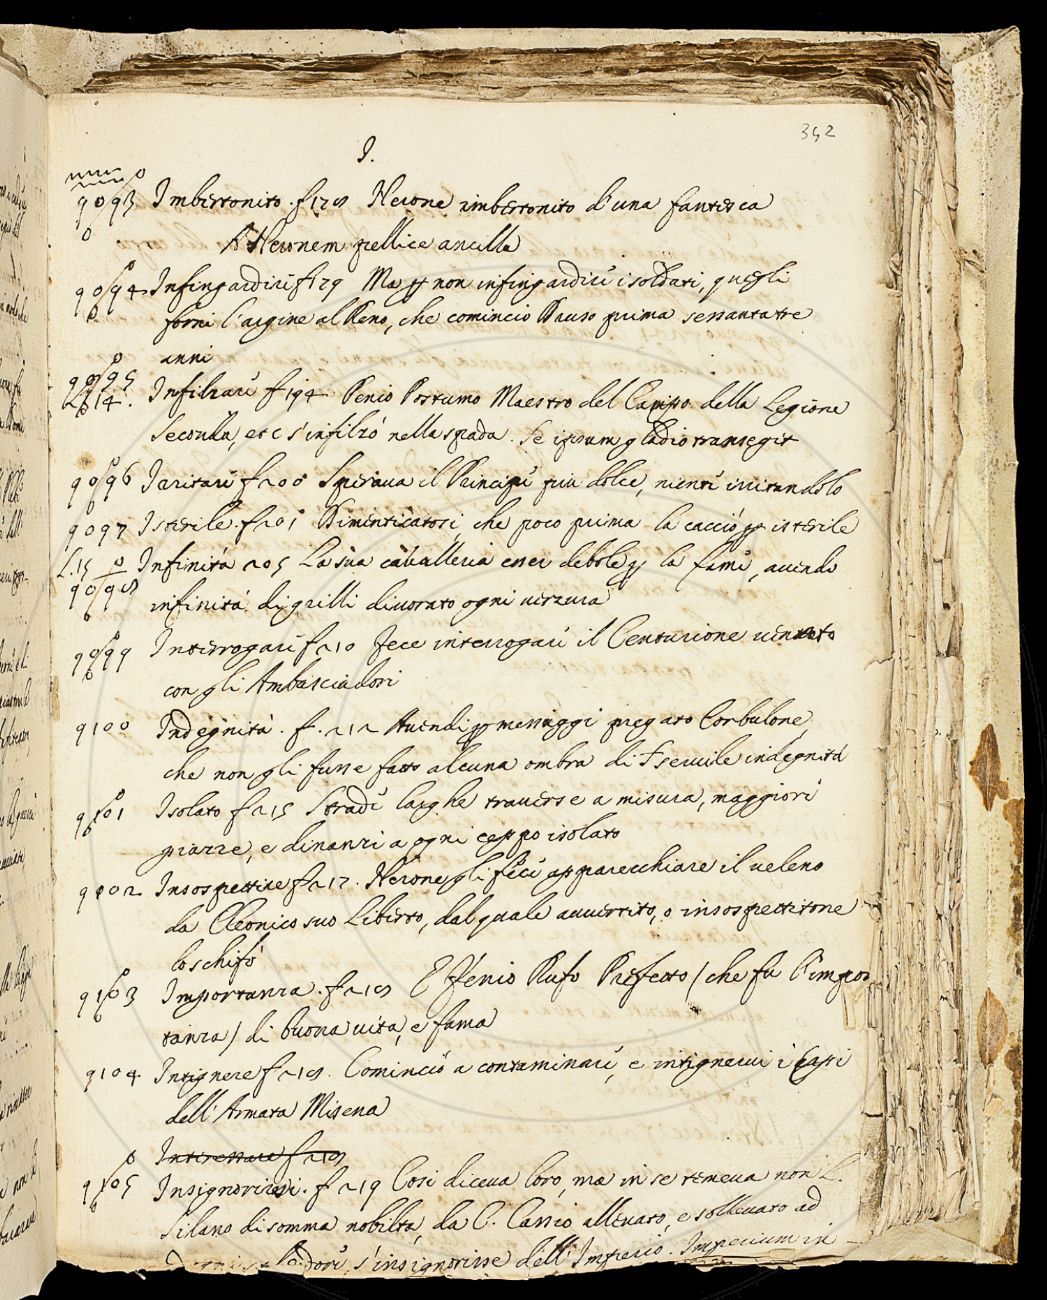 342
I.
9093 Imbertonito. f 178 Nerone imbertonito d'una fantesca
A Neronem pellice ancilla
9094 Infingardire f 179 Ma p non infingardire i soldati, quegli
fornì l'argine al Reno, che cominciò Druso prima sessantatre
anni
9095 Infilzare f 194 Penio Postumo Maestro del Campo della Legione
L. 14.
Seconda, etc s'infilzò nella spada. Se ipsum gladio transegit
9096 Irritare f 200 Sperava il Principe più dolce, niente irritandolo
9097 Isterile. f 201 Dimenticatosi, che poco prima la cacciò p isterile
L. 15 Infinità 205 La sua cavalleria esser debole p la fame, avendo
9098 infinità di grilli divorato ogni verzura
9099 Interrogare f 210 Fece interrogare il Centurione venuto
con gli Ambasciadori
9100 Indegnità. f. 212 Avendi p messaggi pregato Corbulone,
che non gli fusse fatto alcuna ombra di servile indegnità
9101 Isolato f 215 Strade larghe traverse a misura, maggiori
piazze, e dinanzi a ogni ceppo isolato
9102 Insospettire f 217. Nerone gli fece apparecchiare il veleno
da Cleonico suo Liberto, dal quale avvertito, o insospettitone
lo schifò
9103 Importanza. f 218 E Fenio Rufo Prefetto (che fu l'impor
tanza) di buona vita, e fama
9104 Intignere f 218. Cominciò a contaminare, e intignervi i Capi
dell'Armata Misena
Interessare f 218
9105 Insignorirsi. f 219 Così diceva loro, ma in se temeva non L.
Silano di somma nobiltà, da C. Cassio allevato, e sollevato ad
s'insignorisse dell'Imperio. Imperium in